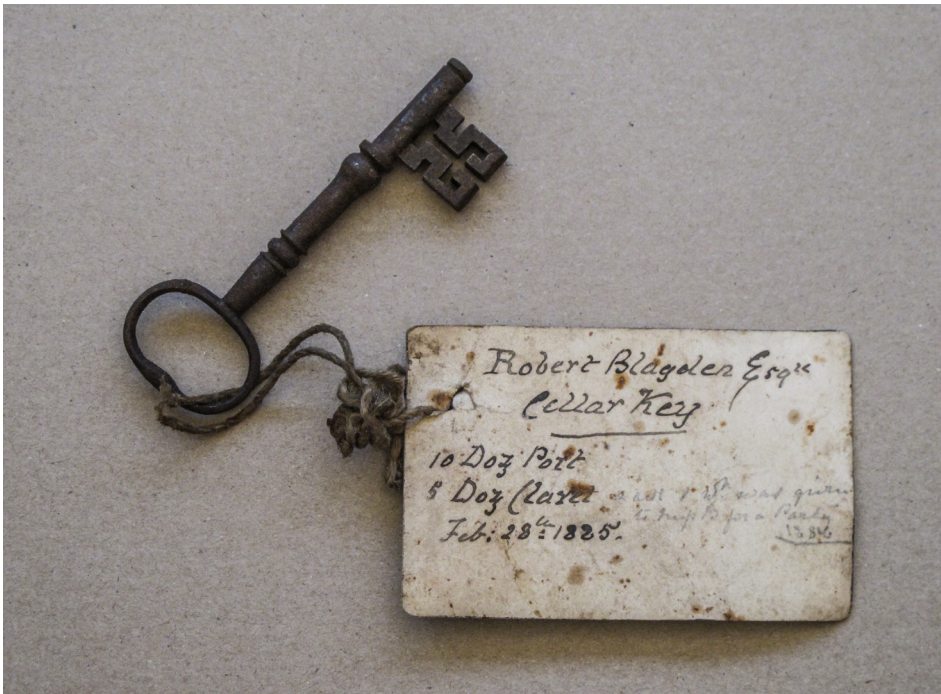 Robert Blagden Esqre
Cellar Key
10 Doz Port
5 Doz Claret
was given
to Miss B for a Party
Feb: 28th 1885.